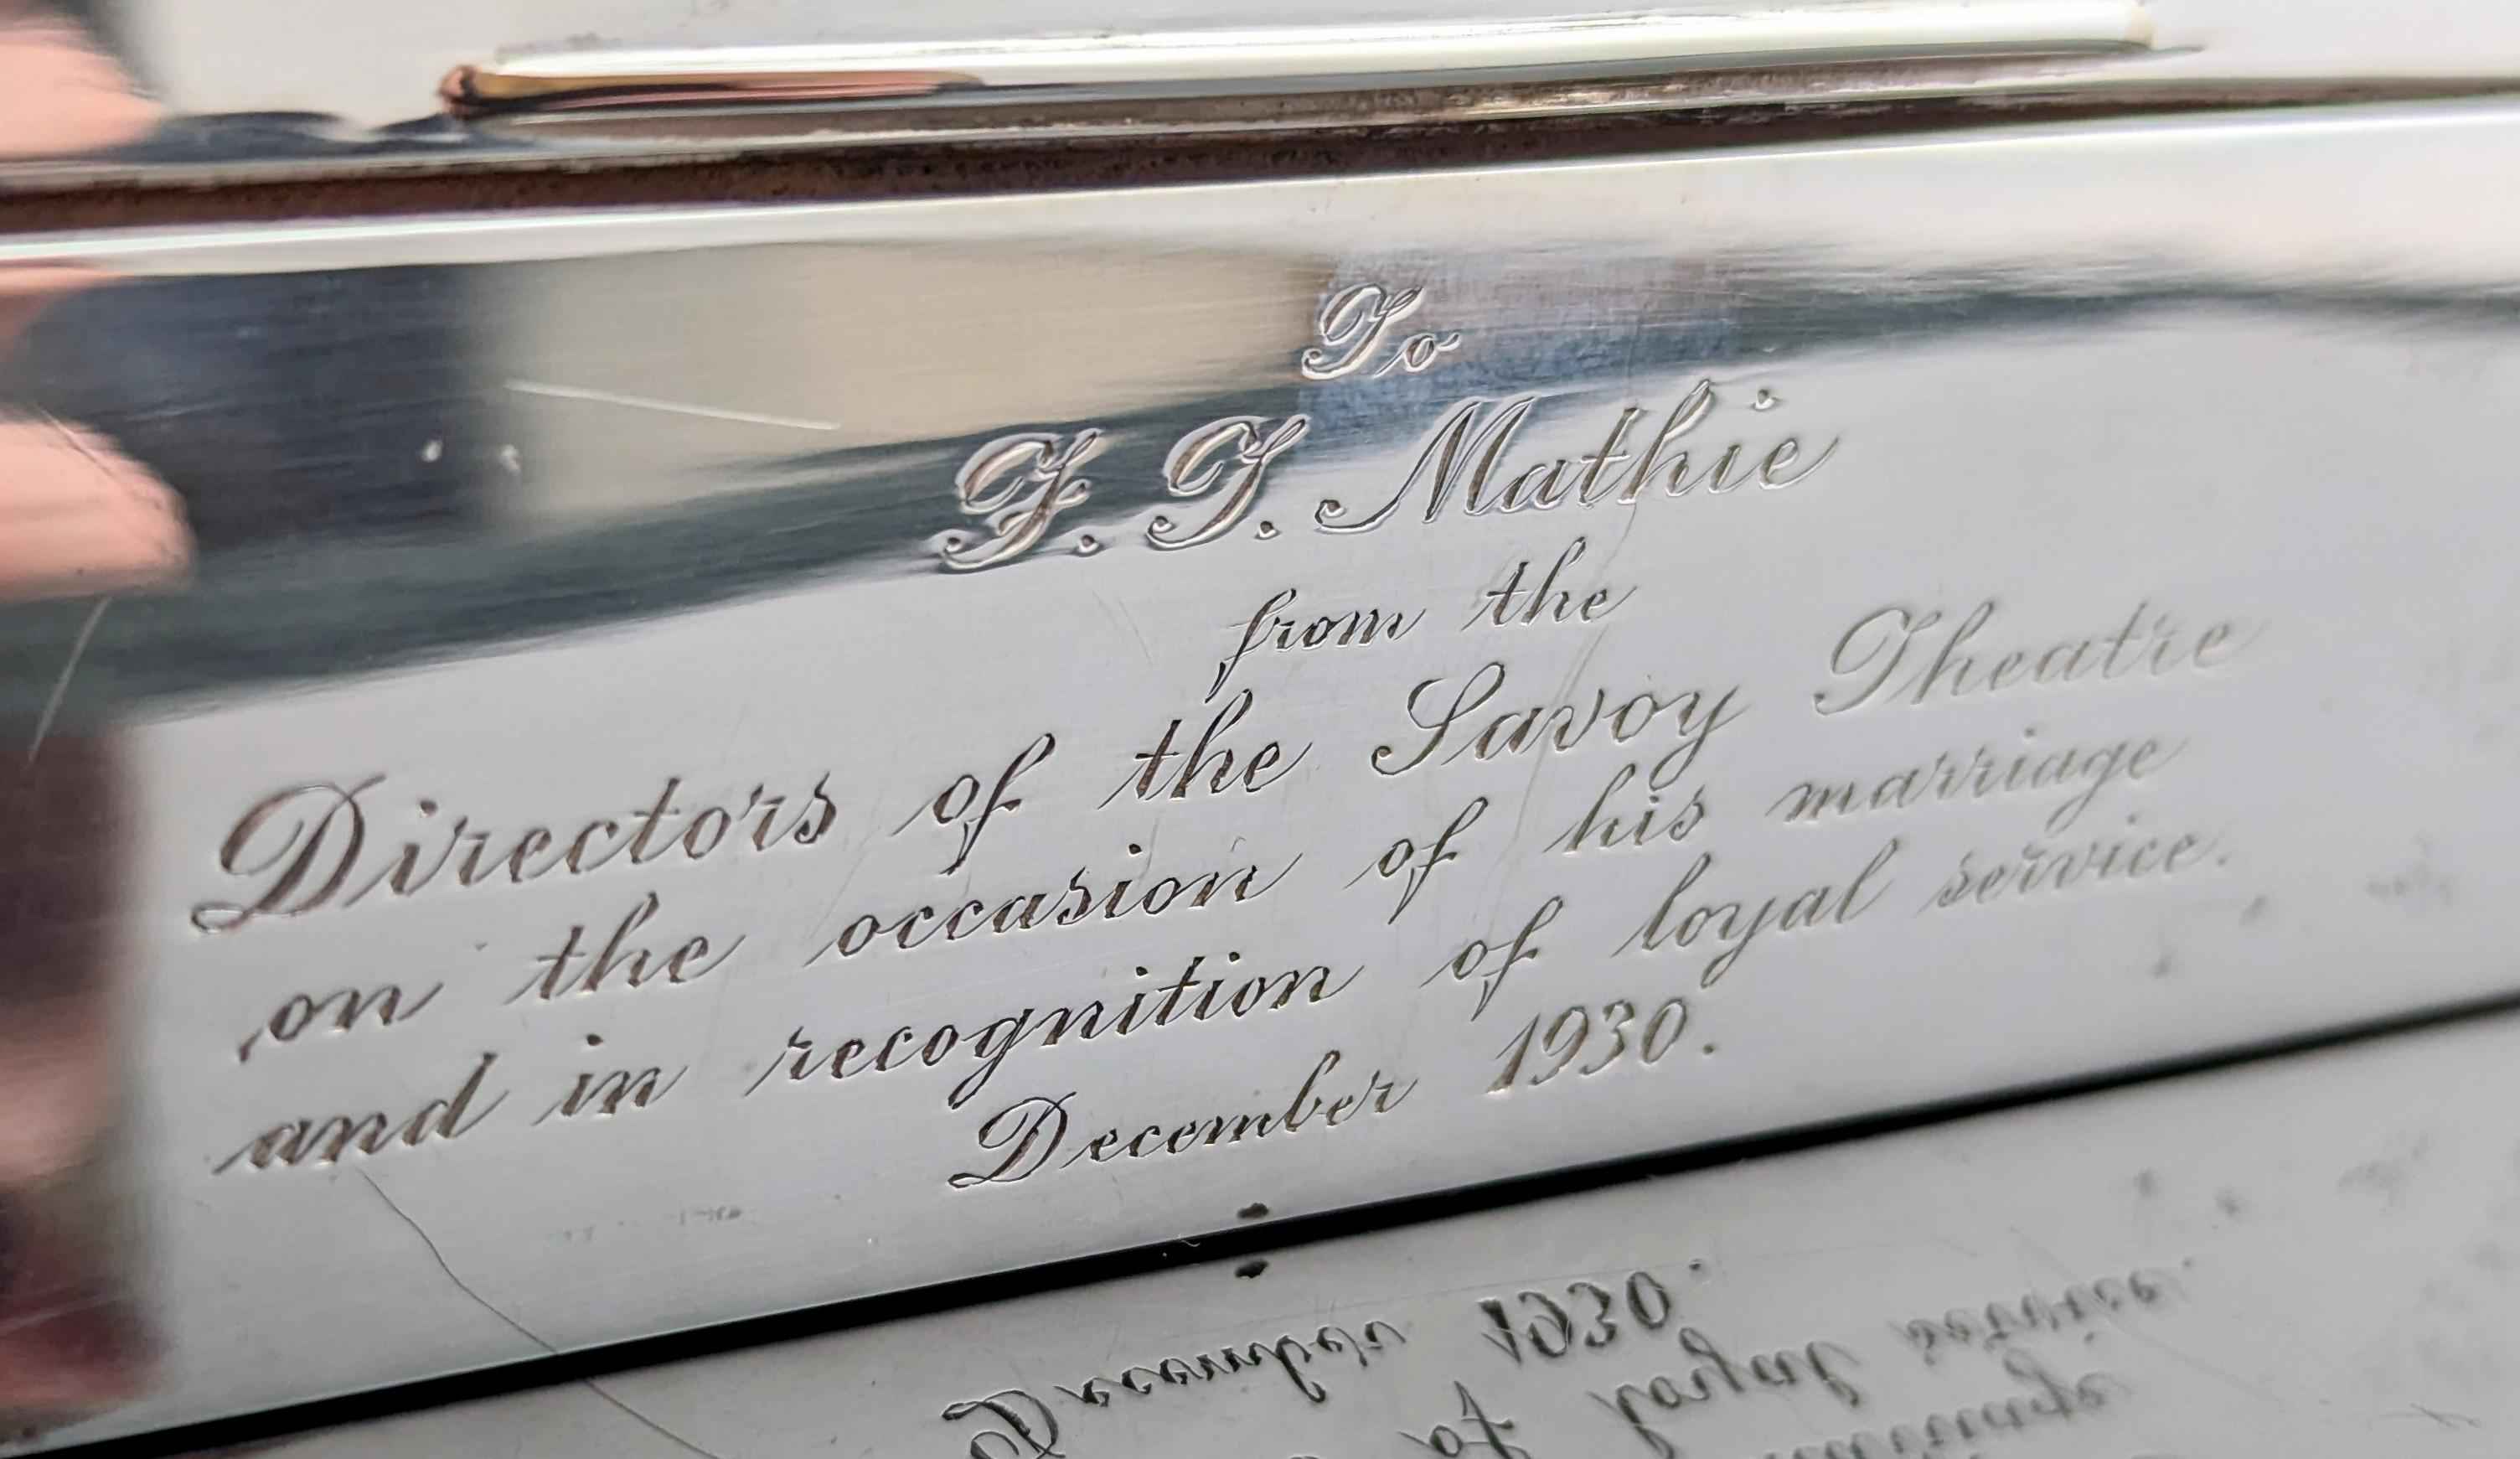 To
F. T. Mathie
from the
Directors of the Savoy Theatre
on the occasion of his marriage
and in recognition of loyal service.
December 1930.